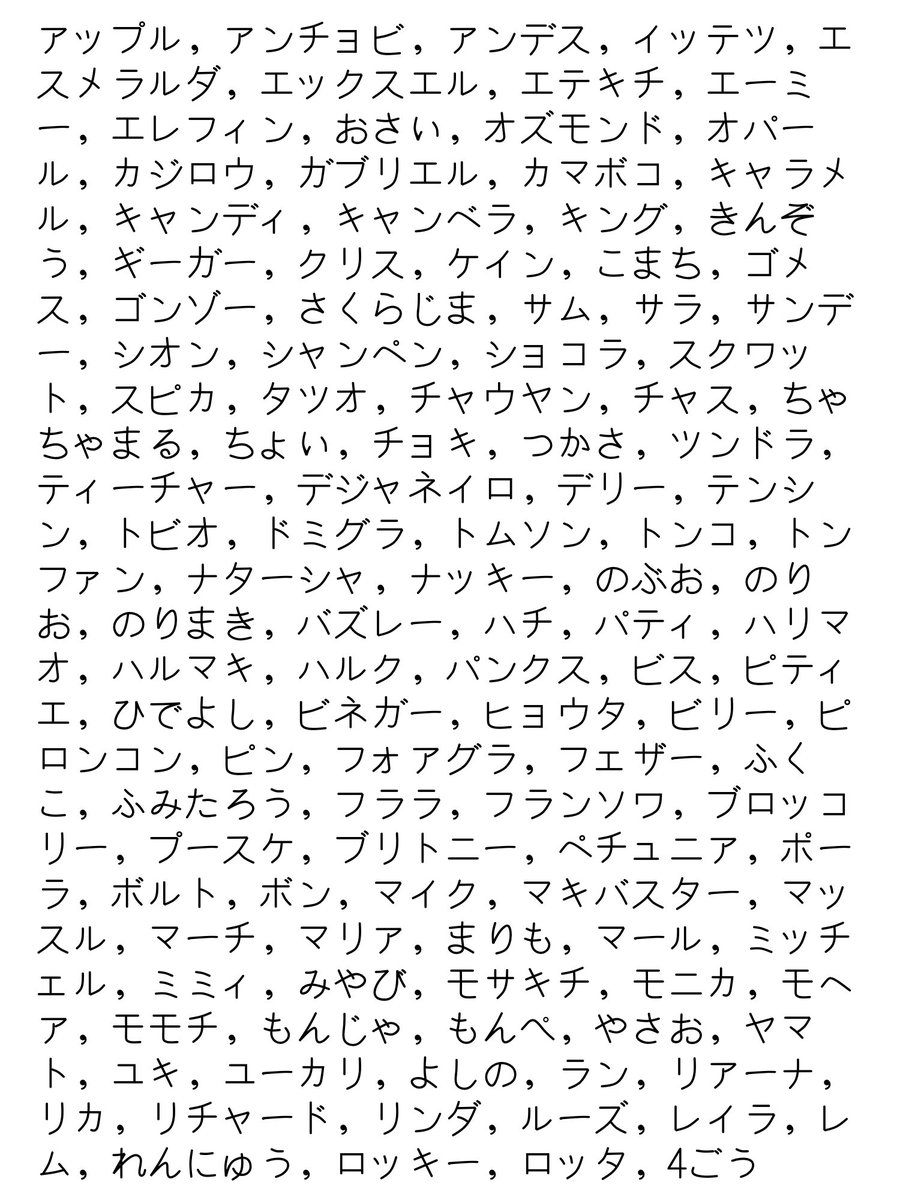 アップル, アンチョビ, アンデス, イッテツ, エ
スメラルダ, エックスエル, エテキチ, エーミ
ー, エレフィン, おさい, オズモンド, オパー
ル, カジロウ, ガブリエル, カマボコ, キャラメ
ル, キャンディ, キャンベラ, キング, きんぞ
う, ギーガー, クリス, ケイン, こまち, ゴメ
ス, ゴンゾー, さくらじま, サム, サラ, サンデ
ー, シオン, シャンペン, ショコラ, スクワッ
ト, スピカ, タツオ, チャウヤン, チャス, ちゃ
ちゃまる, ちょい, チョキ, つかさ, ツンドラ,
ティーチャー, デジャネイロ, デリー, テンシ
ン, トビオ, ドミグラ, トムソン, トンコ, トン
ファン, ナターシャ, ナッキー, のぶお, のり
お, のりまき, バズレー, ハチ, パティ, ハリマ
オ, ハルマキ, ハルク, パンクス, ビス, ピティ
エ, ひでよし, ビネガー, ヒョウタ, ビリー, ピ
ロンコン, ピン, フォアグラ, フェザー, ふく
こ, ふみたろう, フララ, フランソワ, ブロッコ
リー, プースケ, ブリトニー, ペチュニア, ポー
ラ, ボルト, ボン, マイク, マキバスター, マッ
スル, マーチ, マリァ, まりも, マール, ミッチ
ェル, ミミィ, みやび, モサキチ, モニカ, モヘ
ア, モモチ, もんじゃ, もんぺ, やさお, ヤマ
ト, ユキ, ユーカリ, よしの, ラン, リアーナ,
リカ, リチャード, リンダ, ルーズ, レイラ, レ
ム, れんにゅう, ロッキー, ロッタ, 4ごう